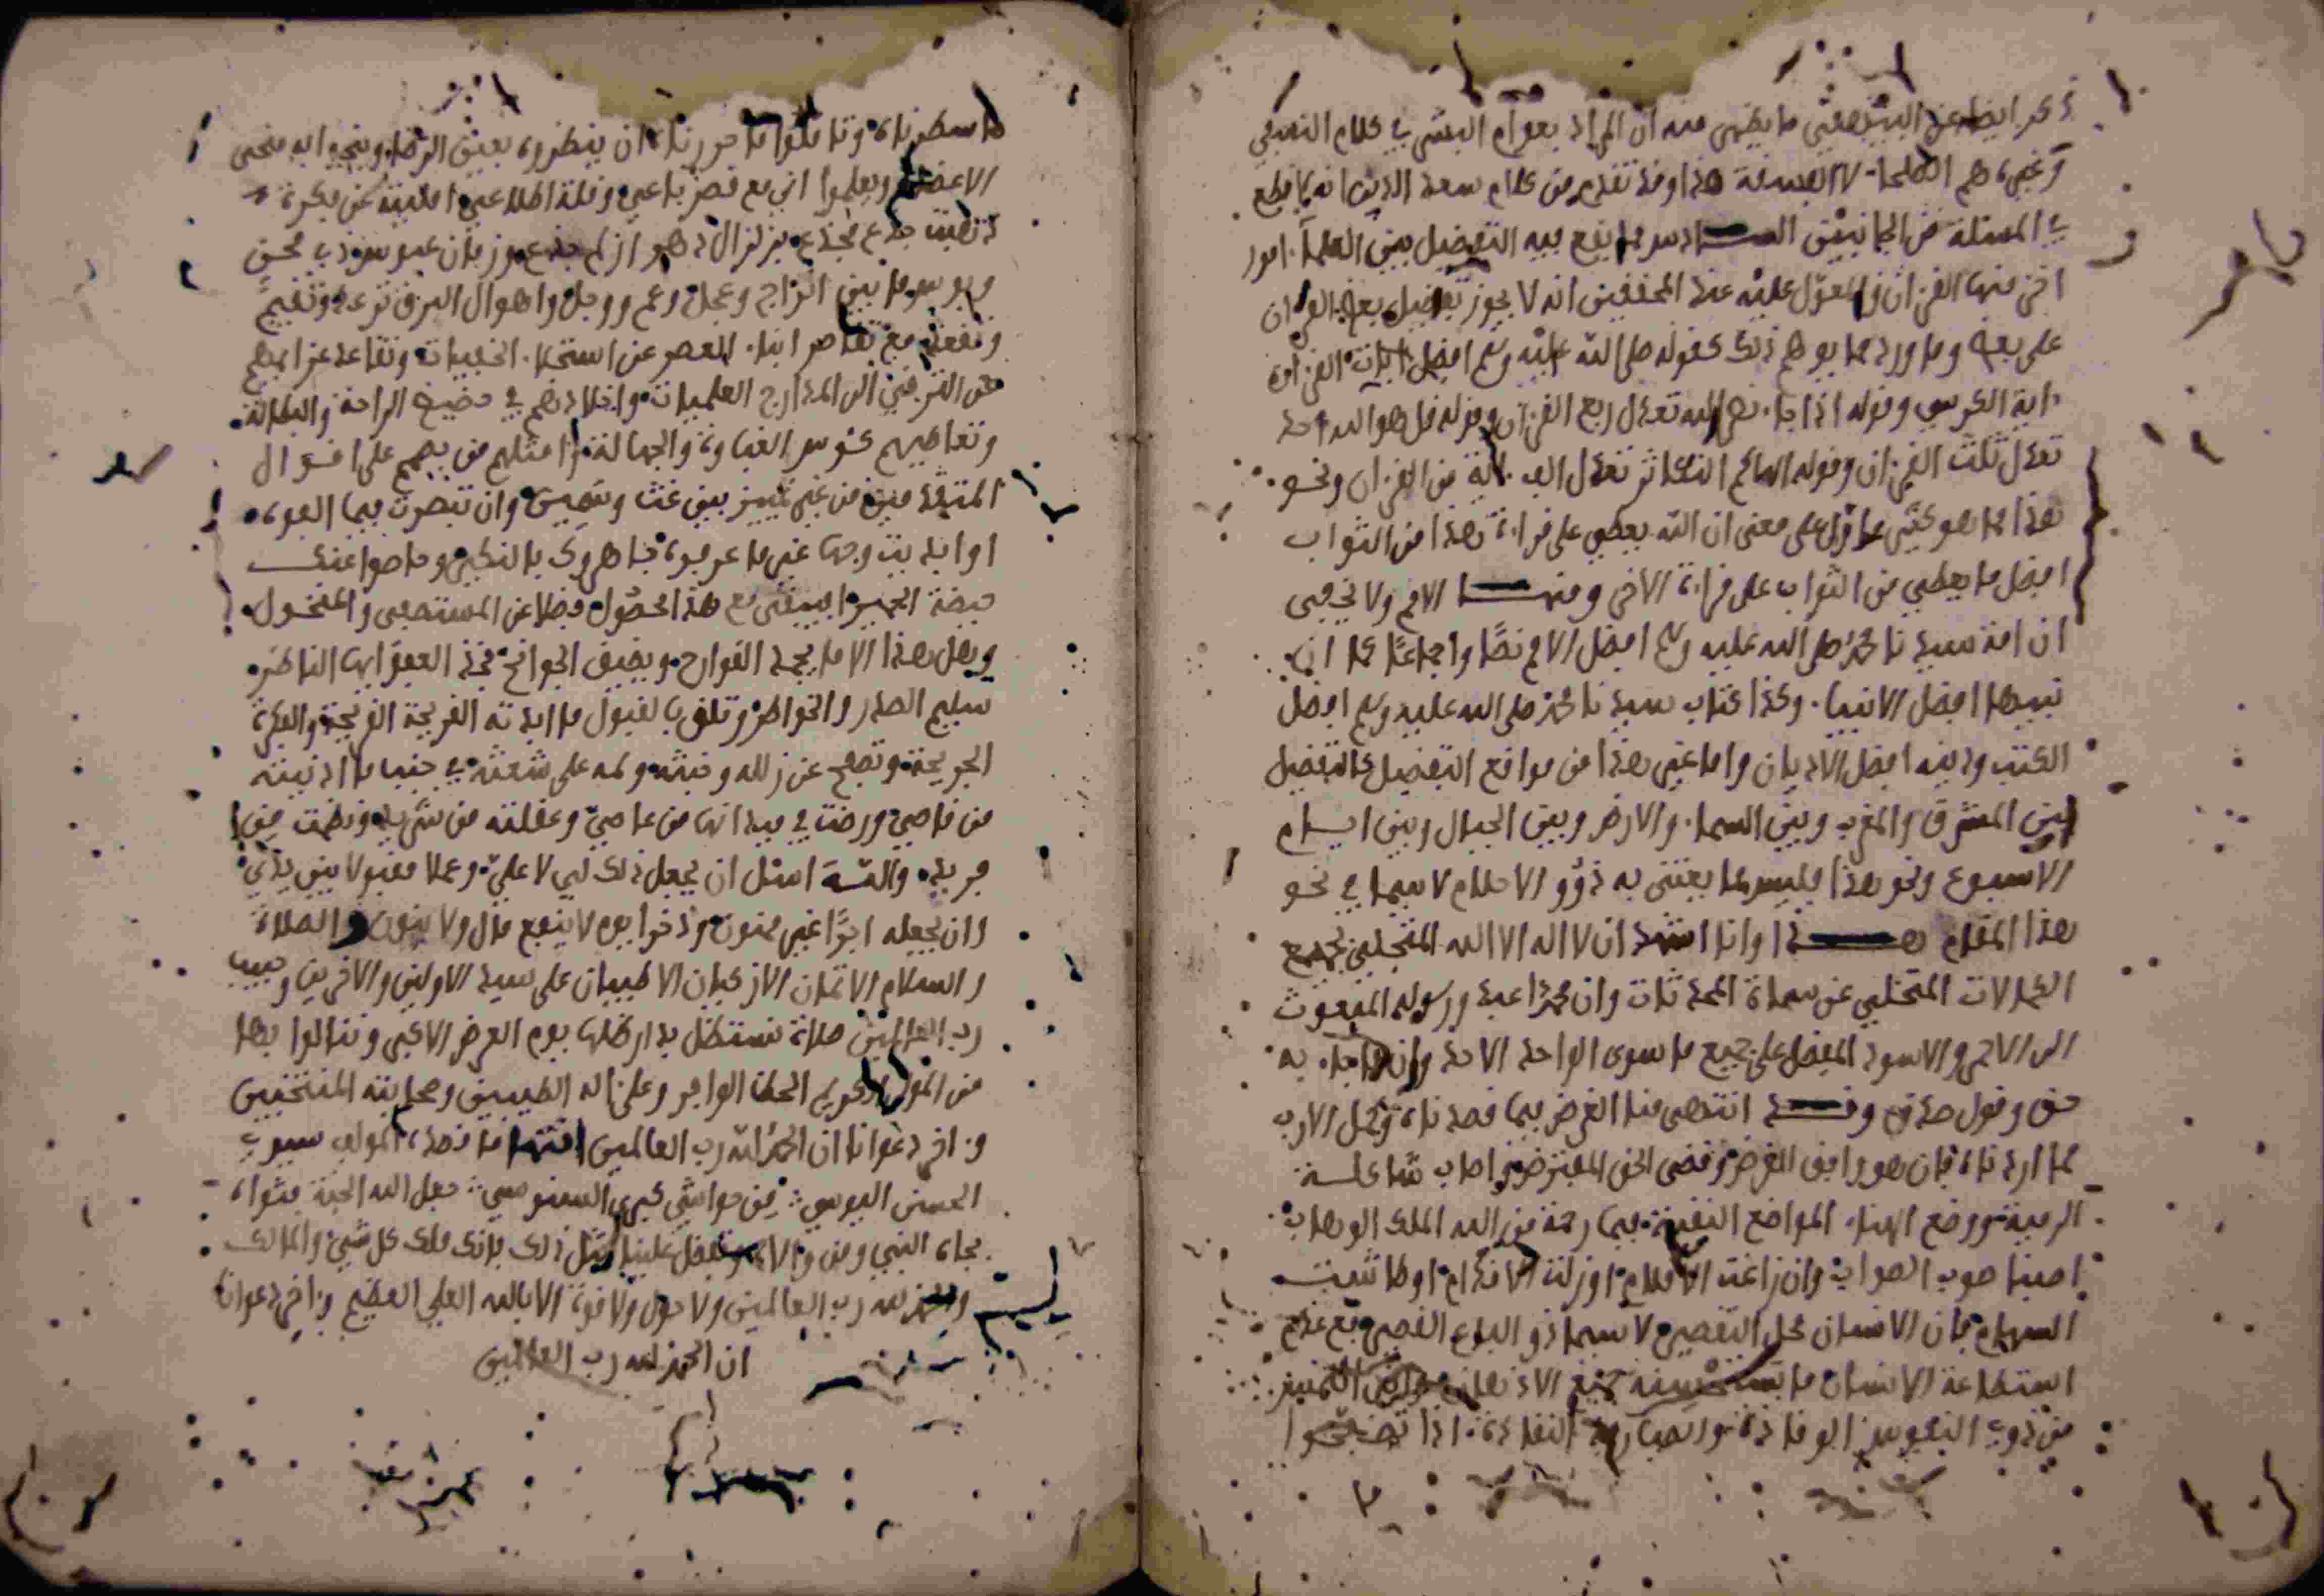 ذكر ايضا عن البيهقي ما يظهر منه ان المراد بعوام البشر في كلام النسفي
وغيره هم الصلحاء لا الفسقة هذا وقد تقدم من كلام سعد الدين انه لا قطع
في المسئلة من الجانبين السادس مما يقع فيه التفضيل بين العلماء امور
اخر منها القرءان والمعول عليه عند المحققين انه لا يجوز تفضيل بعض القرءان
على بعض وما ورد مما يوهم ذلك كقوله صلى الله عليه وسلم افضل ايات القرءان
ءاية الكرسي وقوله اذا جاء نصر الله تعدل ربع القرءان وقوله قل هو الله احد
تعدل ثلث القرءان وقوله الهاكم التكاثر تعدل الف ءاية من القرءان ونحو
هذا مما هو كثير مأول على معنى ان الله يعطي على قراءة هذا من الثواب
افضل ما يعطي من الثواب على قراءة الاخر ومنها الامم ولا يخفى
ان امة سيدنا محمد صلى الله عليه وسلم افضل الامم نصا واجماعا كما ان
نبيها افضل الانبياء وكذا كتاب سيدنا محمد صلى الله عليه وسلم افضل
الكتب ودينه افضل الاديان واما غير هذا من مواقع التفضيل كالتفضيل
بين المشرق والمغرب وبين السماء والارض وبين الجبال وبين ايام
الاسبوع ونحو هذا فليس مما يعتني به ذوو الاحلام لا سيما في نحو
هذا المقام هذا وانا اشهد ان لا اله الا الله المتجلي بجميع
الكمالات المتخلي عن سمات المحدثات وان محمدا عبده ورسوله المبعوث
الى الاحمر والاسود المفضل على جميع ما سوى الواحد الاحد وان ما جاء به
حق وقول صدق وقد انتهى منا الغرض فيما قصدناه وكمل الارب
مما اردناه فان هو وافق الغرض وقضى الحق المفترض واصاب شاكلة
الرمية ووضع الهناء المواضع النقبة فبما رحمة من الله الملك الوهاب
اصبنا صوب الصواب وان زاغت الاقلام او زلت الاقدام او طاشت
السهام فان الانسان محل التقصير لا سيما ذو الباع القصير مع عدم
استطاعة الانسان ما يستحسنه جميع الاذهان
من ذوي النفوس الوقادة والبصاير النقادة اذا تصفحوا
ما سطرناه وتاملوا ما حررناه ان ينظروه بعين الرضا وينحو به منحى
الاغضاء ويعلموا اني مع قصر باعي وقلة اطلاعي
وبوس ما بين انزاج وعجل وغم ووجل واهوال
مع تقاصر ابناء العصر عن استحلاء الخفيات وتقاعدهم
عن الترقي الى المدارج العلميات واخلادهم في حضيض الراحة والبطالة
وتعاطيهم كئوس الغباوة والجهالة وامثلهم من يهجم على اقوال
المتقدمين من غير تمييز بين غث وسمين وان تبصرت فيما الفوه
او ابديت وجها غير ما عرفوه جاهروك بالنكير وحاصوا عنك
حيصة الحمير مع هذا المحصول فضلا عن المستصفى والمنخول
وهل هذا الا مما يجمد القرائح ويضيق الجوانح فخذ العفو ايها الناظر
سليم الصدر والخاطر وتلق بالقبول ما ابدته القريحة القريحة والفكرة
الجريحة وتصفح عن زلله ولمه على شعثه
والله اسئل ان يجعل ذلك لي لا علي وعملا مقبولا بين يدي
وان يجعله اجرا غير ممنون وذخرا يوم لا ينفع مال ولا بنون والصلاة
والسلام الاتمان الازكيان الاطيبان على سيد الاولين والاخرين وحبيب
رب العالمين صلاة نستظل بدار ظلها يوم العرض الاكبر وننالوا بها
من المولى الكريم الحظ الوافر وعلى ءاله الطيبين وصحابته المنتخبين
وءاخر دعوانا ان الحمد لله رب العالمين انتهى ما قصده المولف سيدي
الحسن اليوسي من حواشي كبرى السنوسي جعل الله الجنة مثواه
بجاه النبي ومن والاه وتفضل علينا بمثل ذلك فانك ملك كل شيء والمالك
والحمد لله رب العالمين ولا حول ولا قوة الا بالله العلي العظيم وءاخر دعوانا
ان الحمد لله رب العالمين